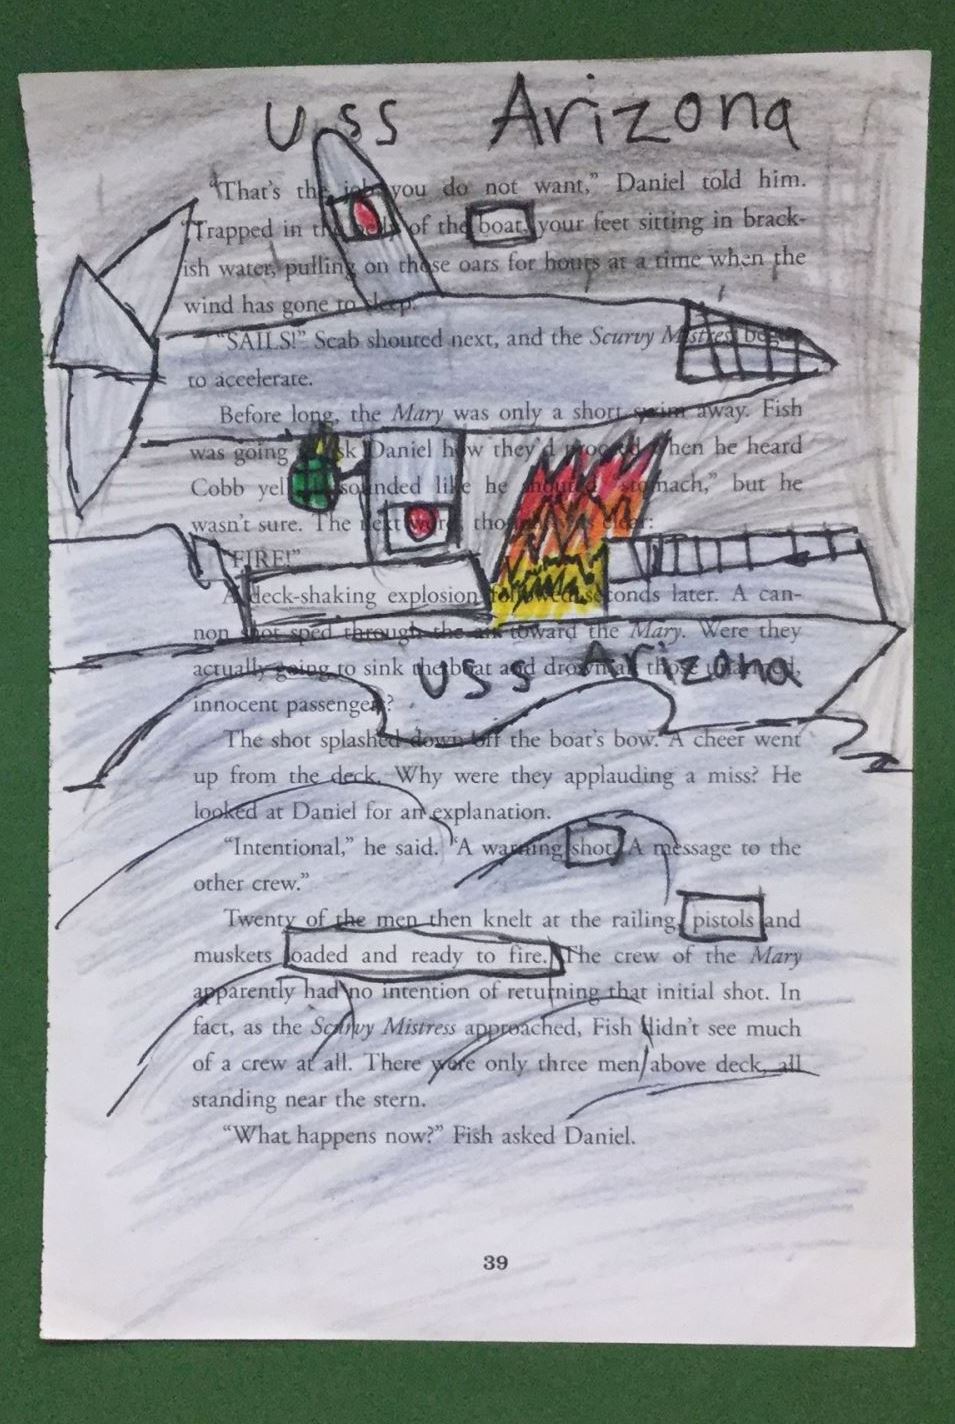 USS Arizona
“That’s the job you do not want,” Daniel told him.
“Trapped in the belly of the boat, your feet sitting in brack-
ish water, pulling on those oars for hours at a time when the
wind has gone to sleep.
“SAILS!” Scab shouted next, and the Scurvy Mistress began
to accelerate.
Before long, the Mary was only a short swim away. Fish
was going ask Daniel how they’d proceed when he heard
Cobb yell sounded like he shouted “stomach,” but he
wasn’t sure. The next word, though, was clear:
“FIRE!”
A deck-shaking explosion followed seconds later. A can-
non shot sped through the air toward the Mary. Were they
actually going to sink the boat and drown all those
USS Arizona
innocent passengers?
The shot splashed down off the boat’s bow. A cheer went
up from the deck. Why were they applauding a miss? He
looked at Daniel for an explanation.
“Intentional,” he said. “A warning shot. A message to the
other crew.”
Twenty of the men then knelt at the railing, pistols and
muskets loaded and ready to fire. The crew of the Mary
apparently had no intention of returning that initial shot. In
fact, as the Scurvy Mistress approached, Fish didn’t see much
of a crew at all. There were only three men above deck, all
standing near the stern.
“What happens now?” Fish asked Daniel.
39